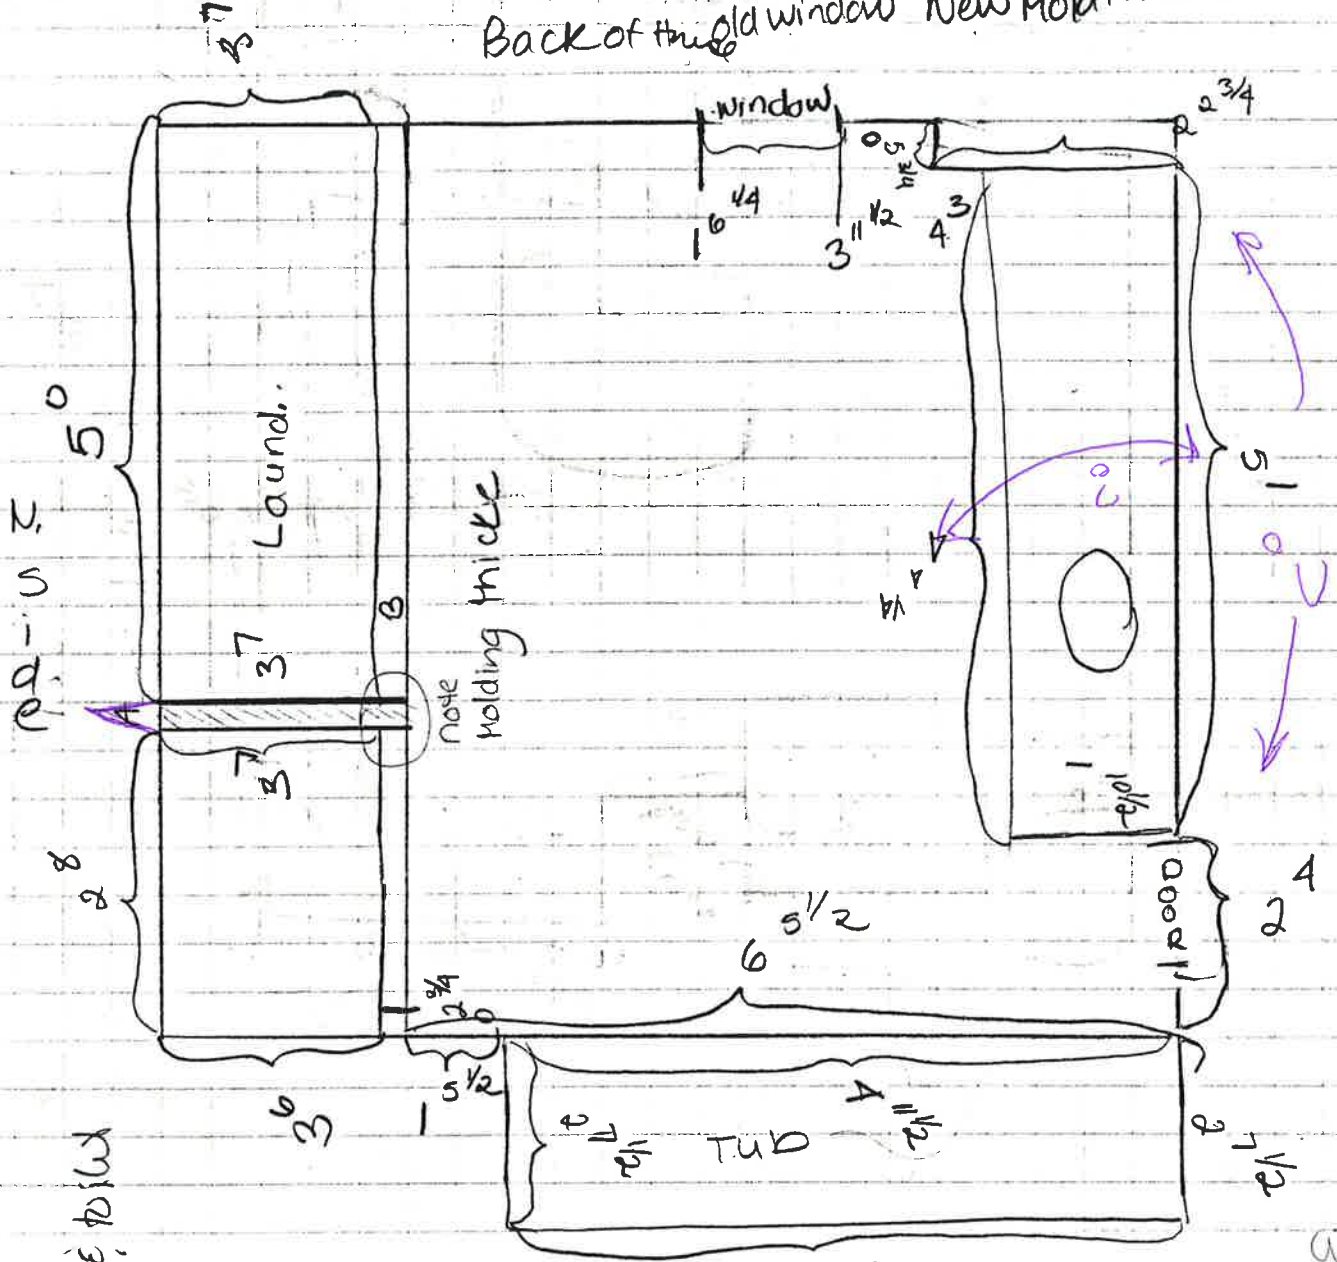 Back of the old window New Mold
3 7
window
2 3/4
0 5 3/4
1 6 1/4
3 11 1/2
4 3
5 0
Laund.
3 7
B
note
Molding thicke
A
3 7
2 8
5 1
4 1/4
1 10 1/2
DOOR
2 4
6 5 1/2
0 2 3/4
3 6
1 5 1/2
2 7 1/2
TUB
4 11 1/2
2 7 1/2